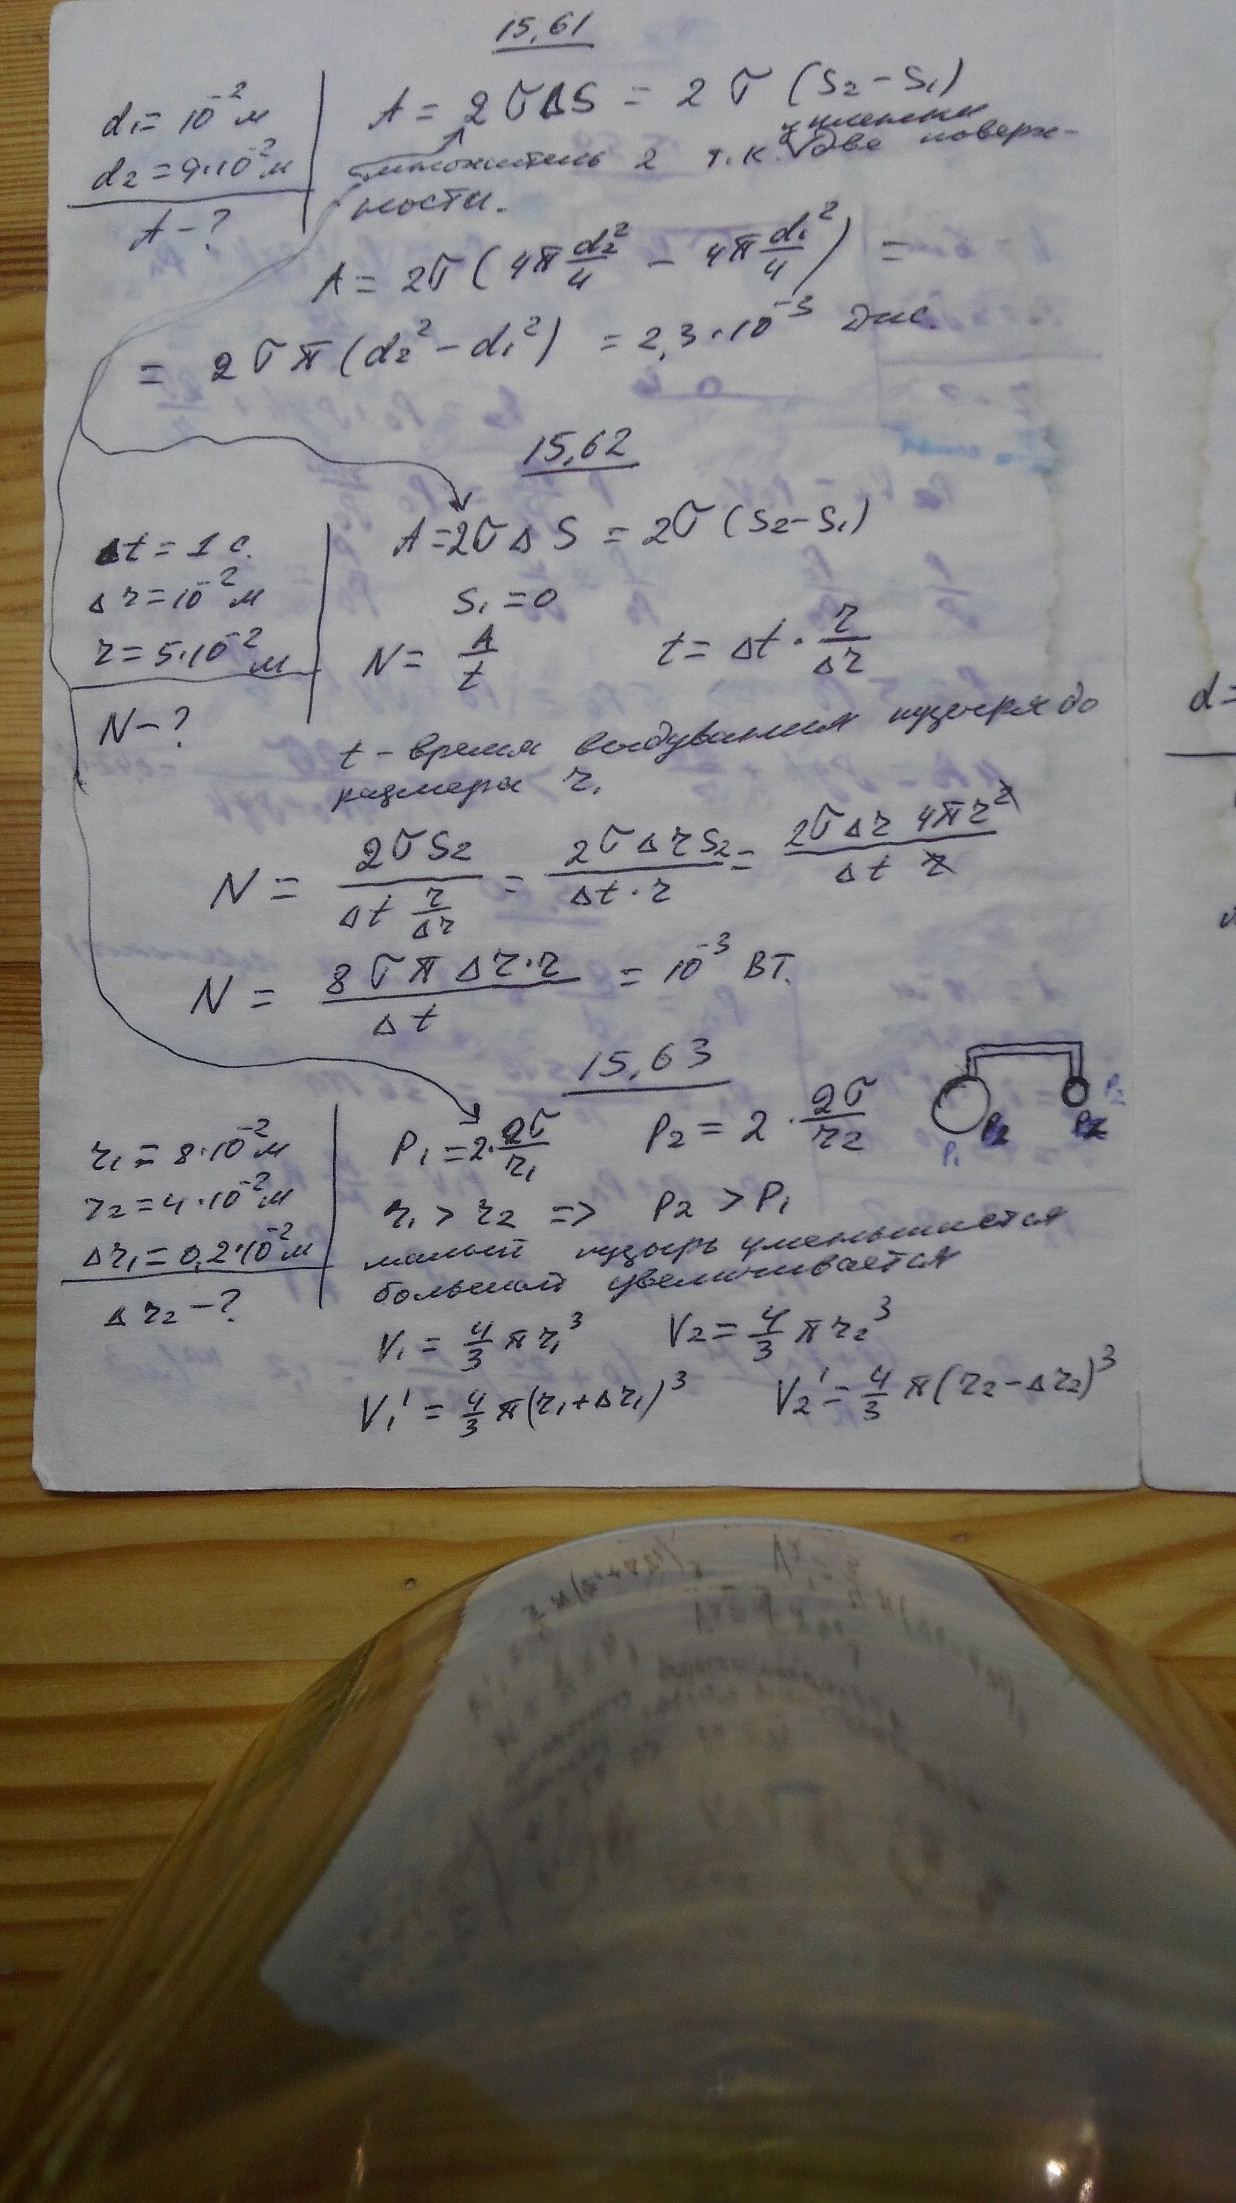 15,61
d₁ = 10⁻² м
d₂ = 9·10⁻² м
A - ?
A = 2σΔS = 2σ (S₂ - S₁)
множитель 2 т.к. у пленки две поверх-
ности.
A = 2σ (4π d₂²/4 - 4π d₁²/4) =
= 2σπ (d₂² - d₁²) = 2,3·10⁻³ Дж.
15,62
Δt = 1 с.
Δr = 10⁻² м
r = 5·10⁻² м
N - ?
A = 2σΔS = 2σ (S₂ - S₁)
S₁ = 0
N = A/t t = Δt · r/Δr
t - время выдувания пузыря до
размера r.
N = 2σS₂/(Δt r/Δr) = 2σΔrS₂/(Δt·r) = 2σΔr 4πr²/(Δt r)
N = 8σπΔr·r/Δt = 10⁻³ Вт.
15,63
r₁ = 8·10⁻² м
r₂ = 4·10⁻² м
Δr₁ = 0,2·10⁻² м
Δr₂ - ?
P₁ = 2·2σ/r₁ P₂ = 2·2σ/r₂
P₁ P₂
r₁ > r₂ => P₂ > P₁
малый пузырь уменьшается
большой увеличивается
V₁ = 4/3 πr₁³ V₂ = 4/3 πr₂³
V₁' = 4/3 π(r₁ + Δr₁)³ V₂' = 4/3 π(r₂ - Δr₂)³
d =